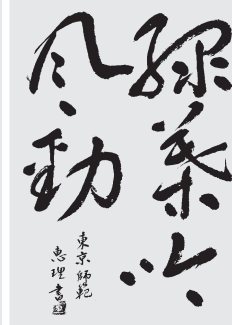 緑葉吟
風勁
東京師範
恵理書